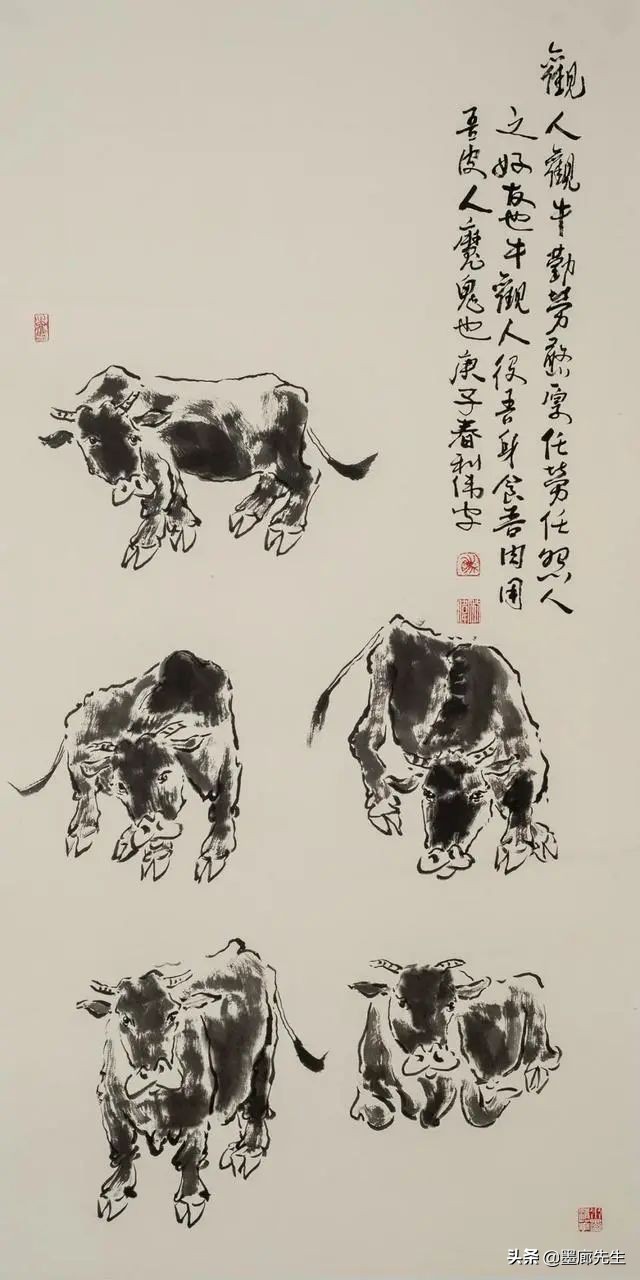 觀人觀牛勤勞敦厚任勞任怨人
之好友也牛觀人役吾身食吾肉用
吾皮人魔鬼也庚子春利伟
头条 @墨廊先生